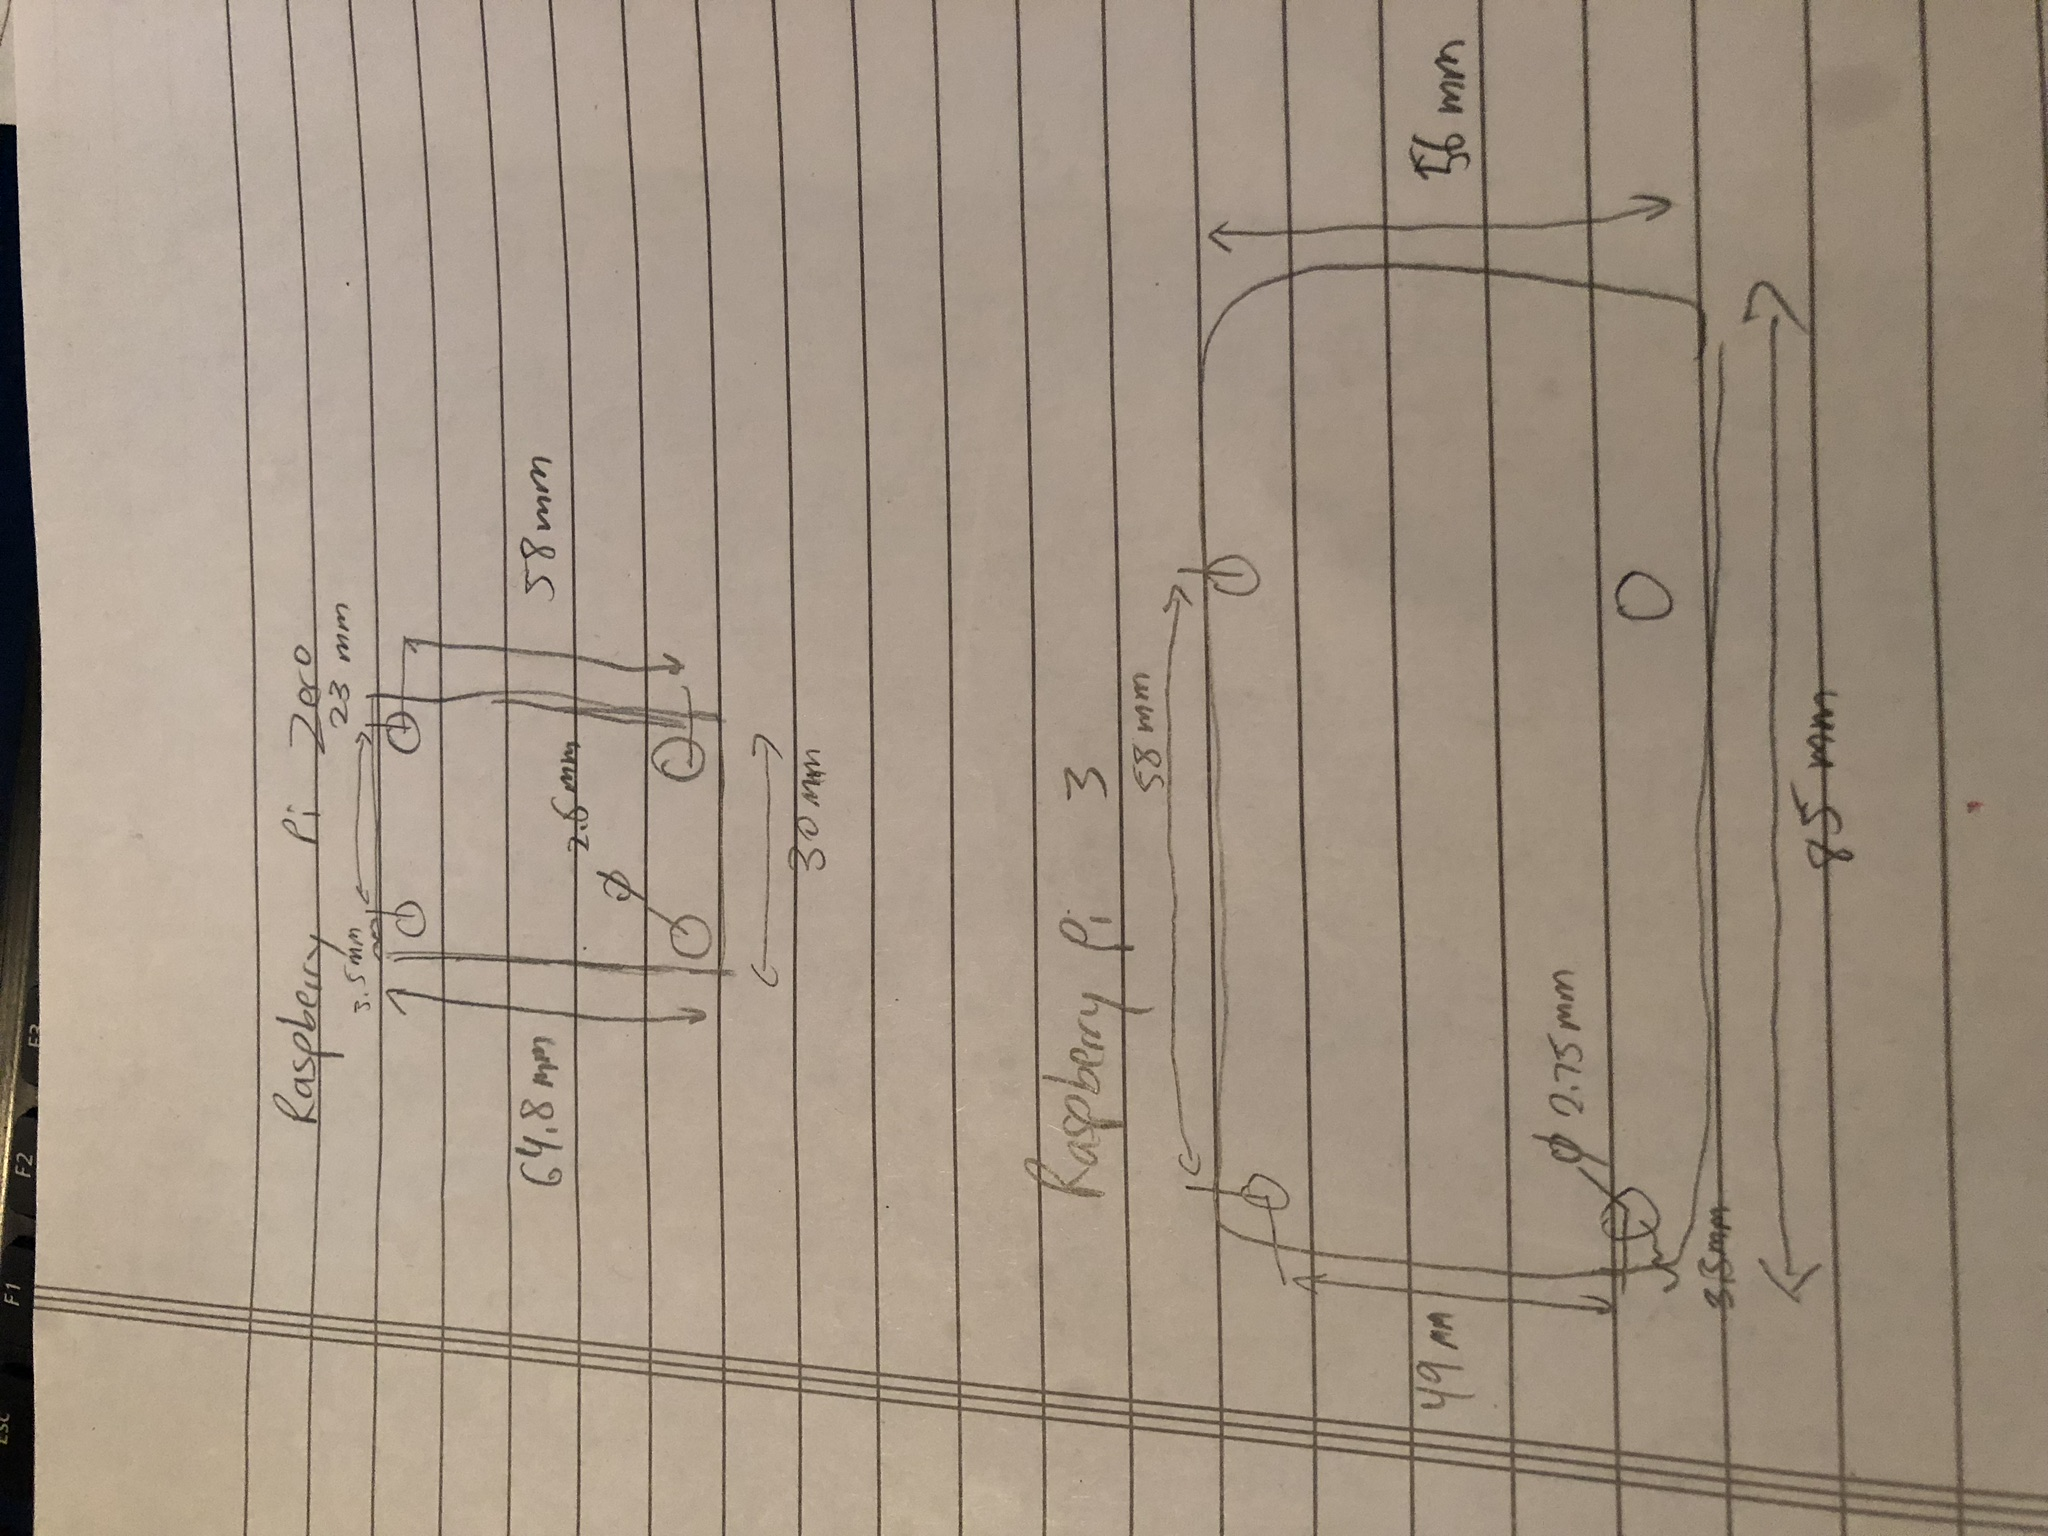 Raspberry Pi Zero
3.5mm
23 mm
64.8 mm
58 mm
2.6 mm
φ
30 mm
Raspberry Pi 3
58 mm
56 mm
49 mm
φ 2.75mm
3.5mm
85 mm
esc
F1
F2
F3